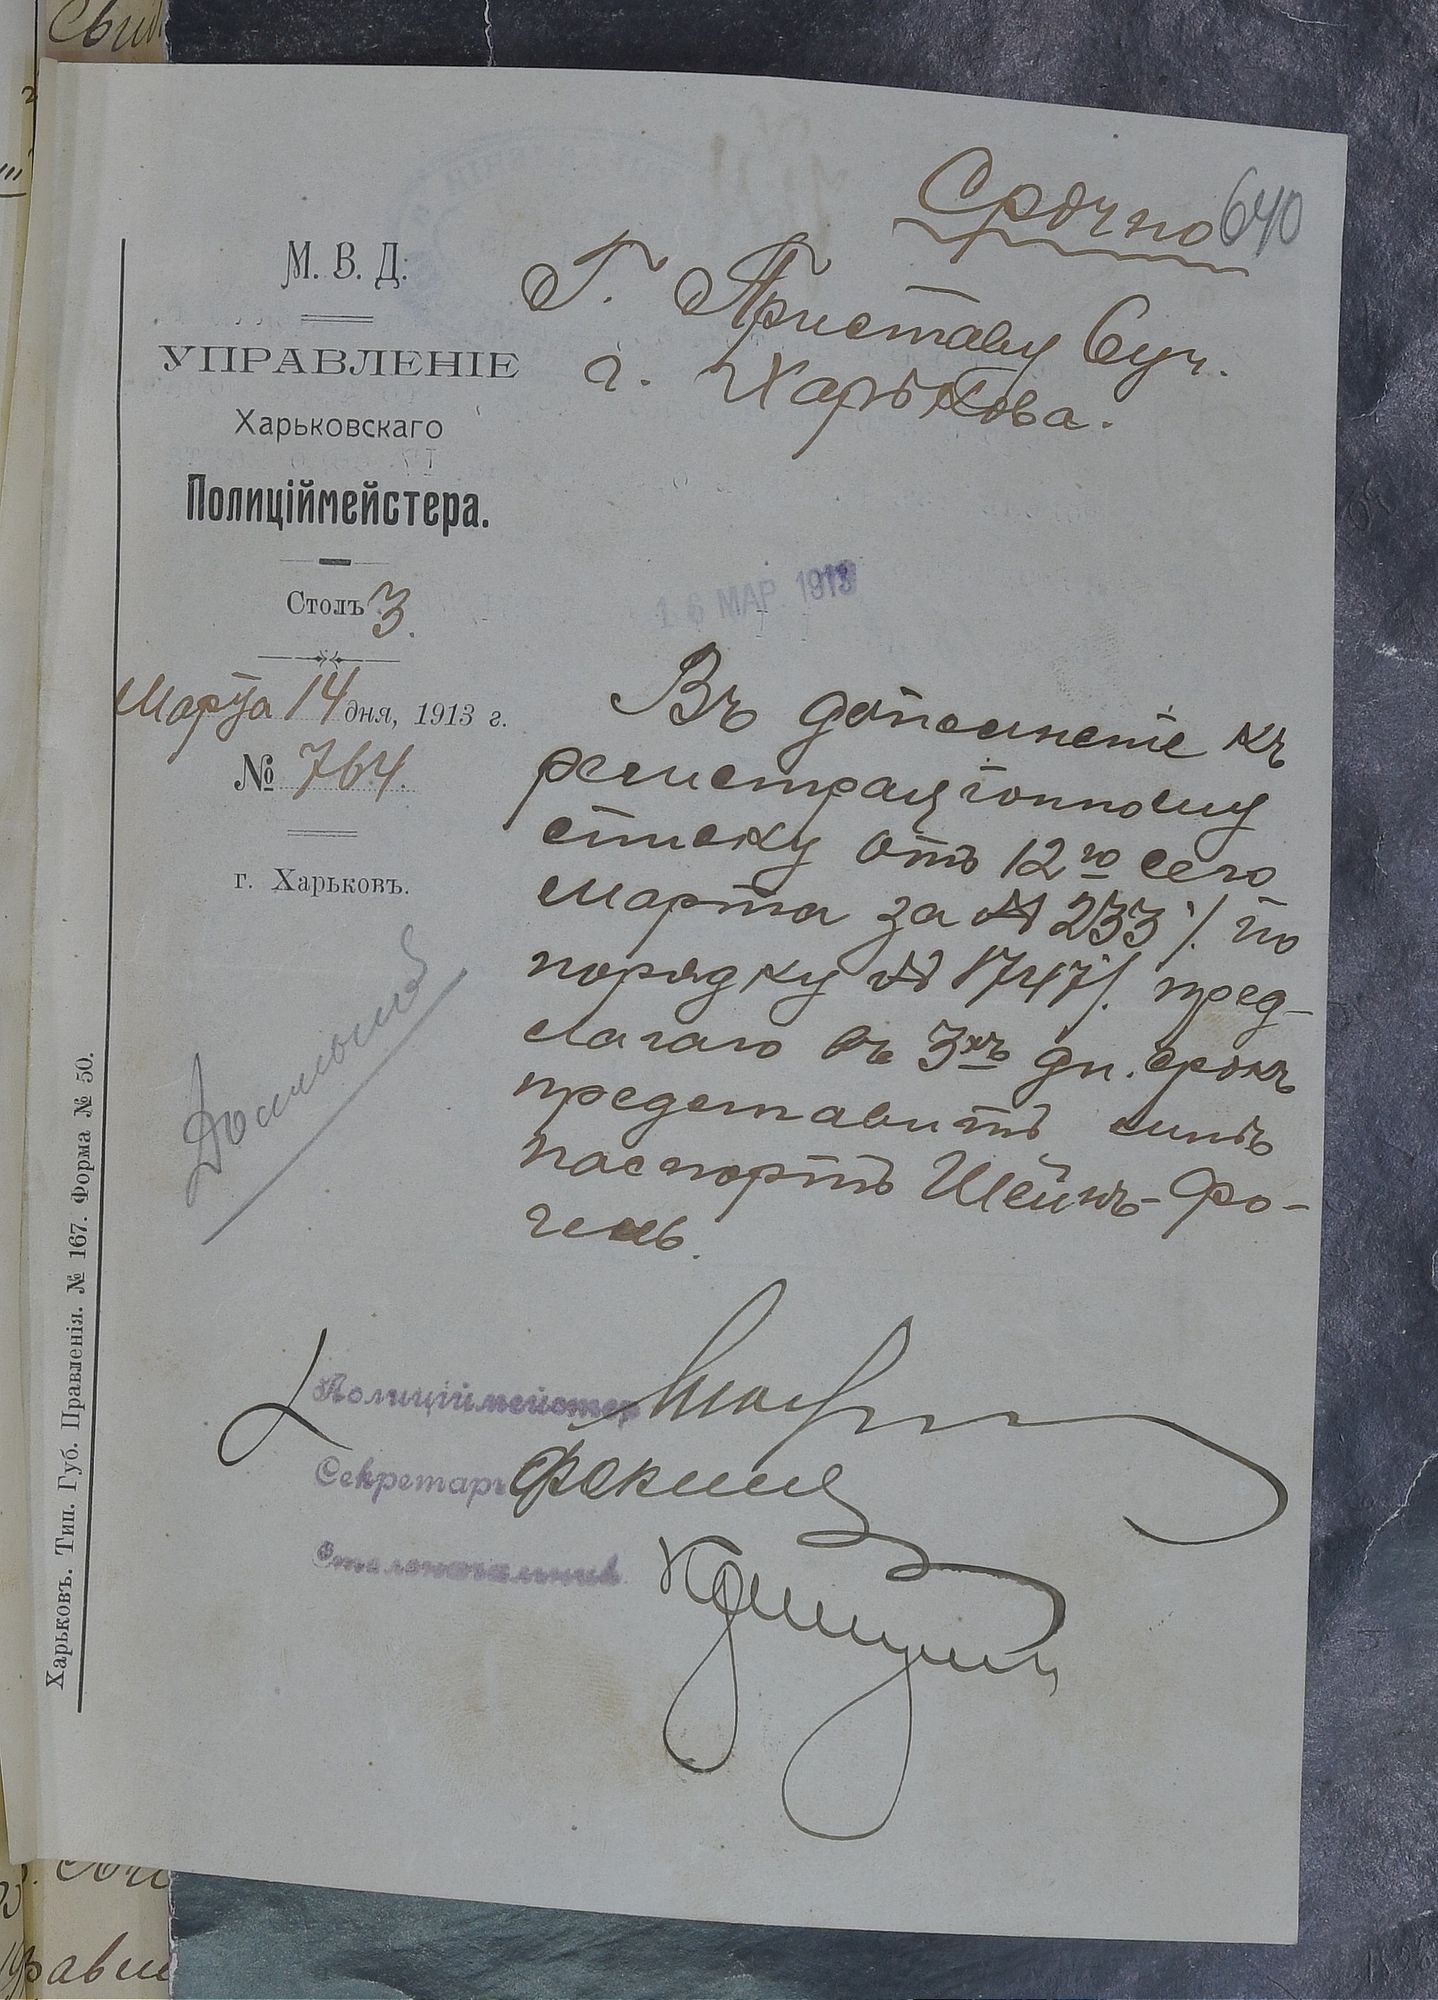 Срочно 640
Г. Приставу 6 уч.
г. Харькова.
М. В. Д.
УПРАВЛЕНІЕ
Харьковскаго
Полиціймейстера.
Столъ 3.
Марта 14 дня, 1913 г.
№ 764.
г. Харьковъ.
16 МАР 1913
Въ дополненіе къ
регистраціонному
списку отъ 12го сего
марта за № 233/. по
порядку № 1747/. пред-
лагаю въ 3хъ дн. срокъ
представить мнѣ
паспортъ Шейнъ-Фо-
гель.
Полиціймейстер
Секретарь Фокинъ
Столоначальник
Харьковъ. Тип. Губ. Правленія. № 167. Форма № 50.